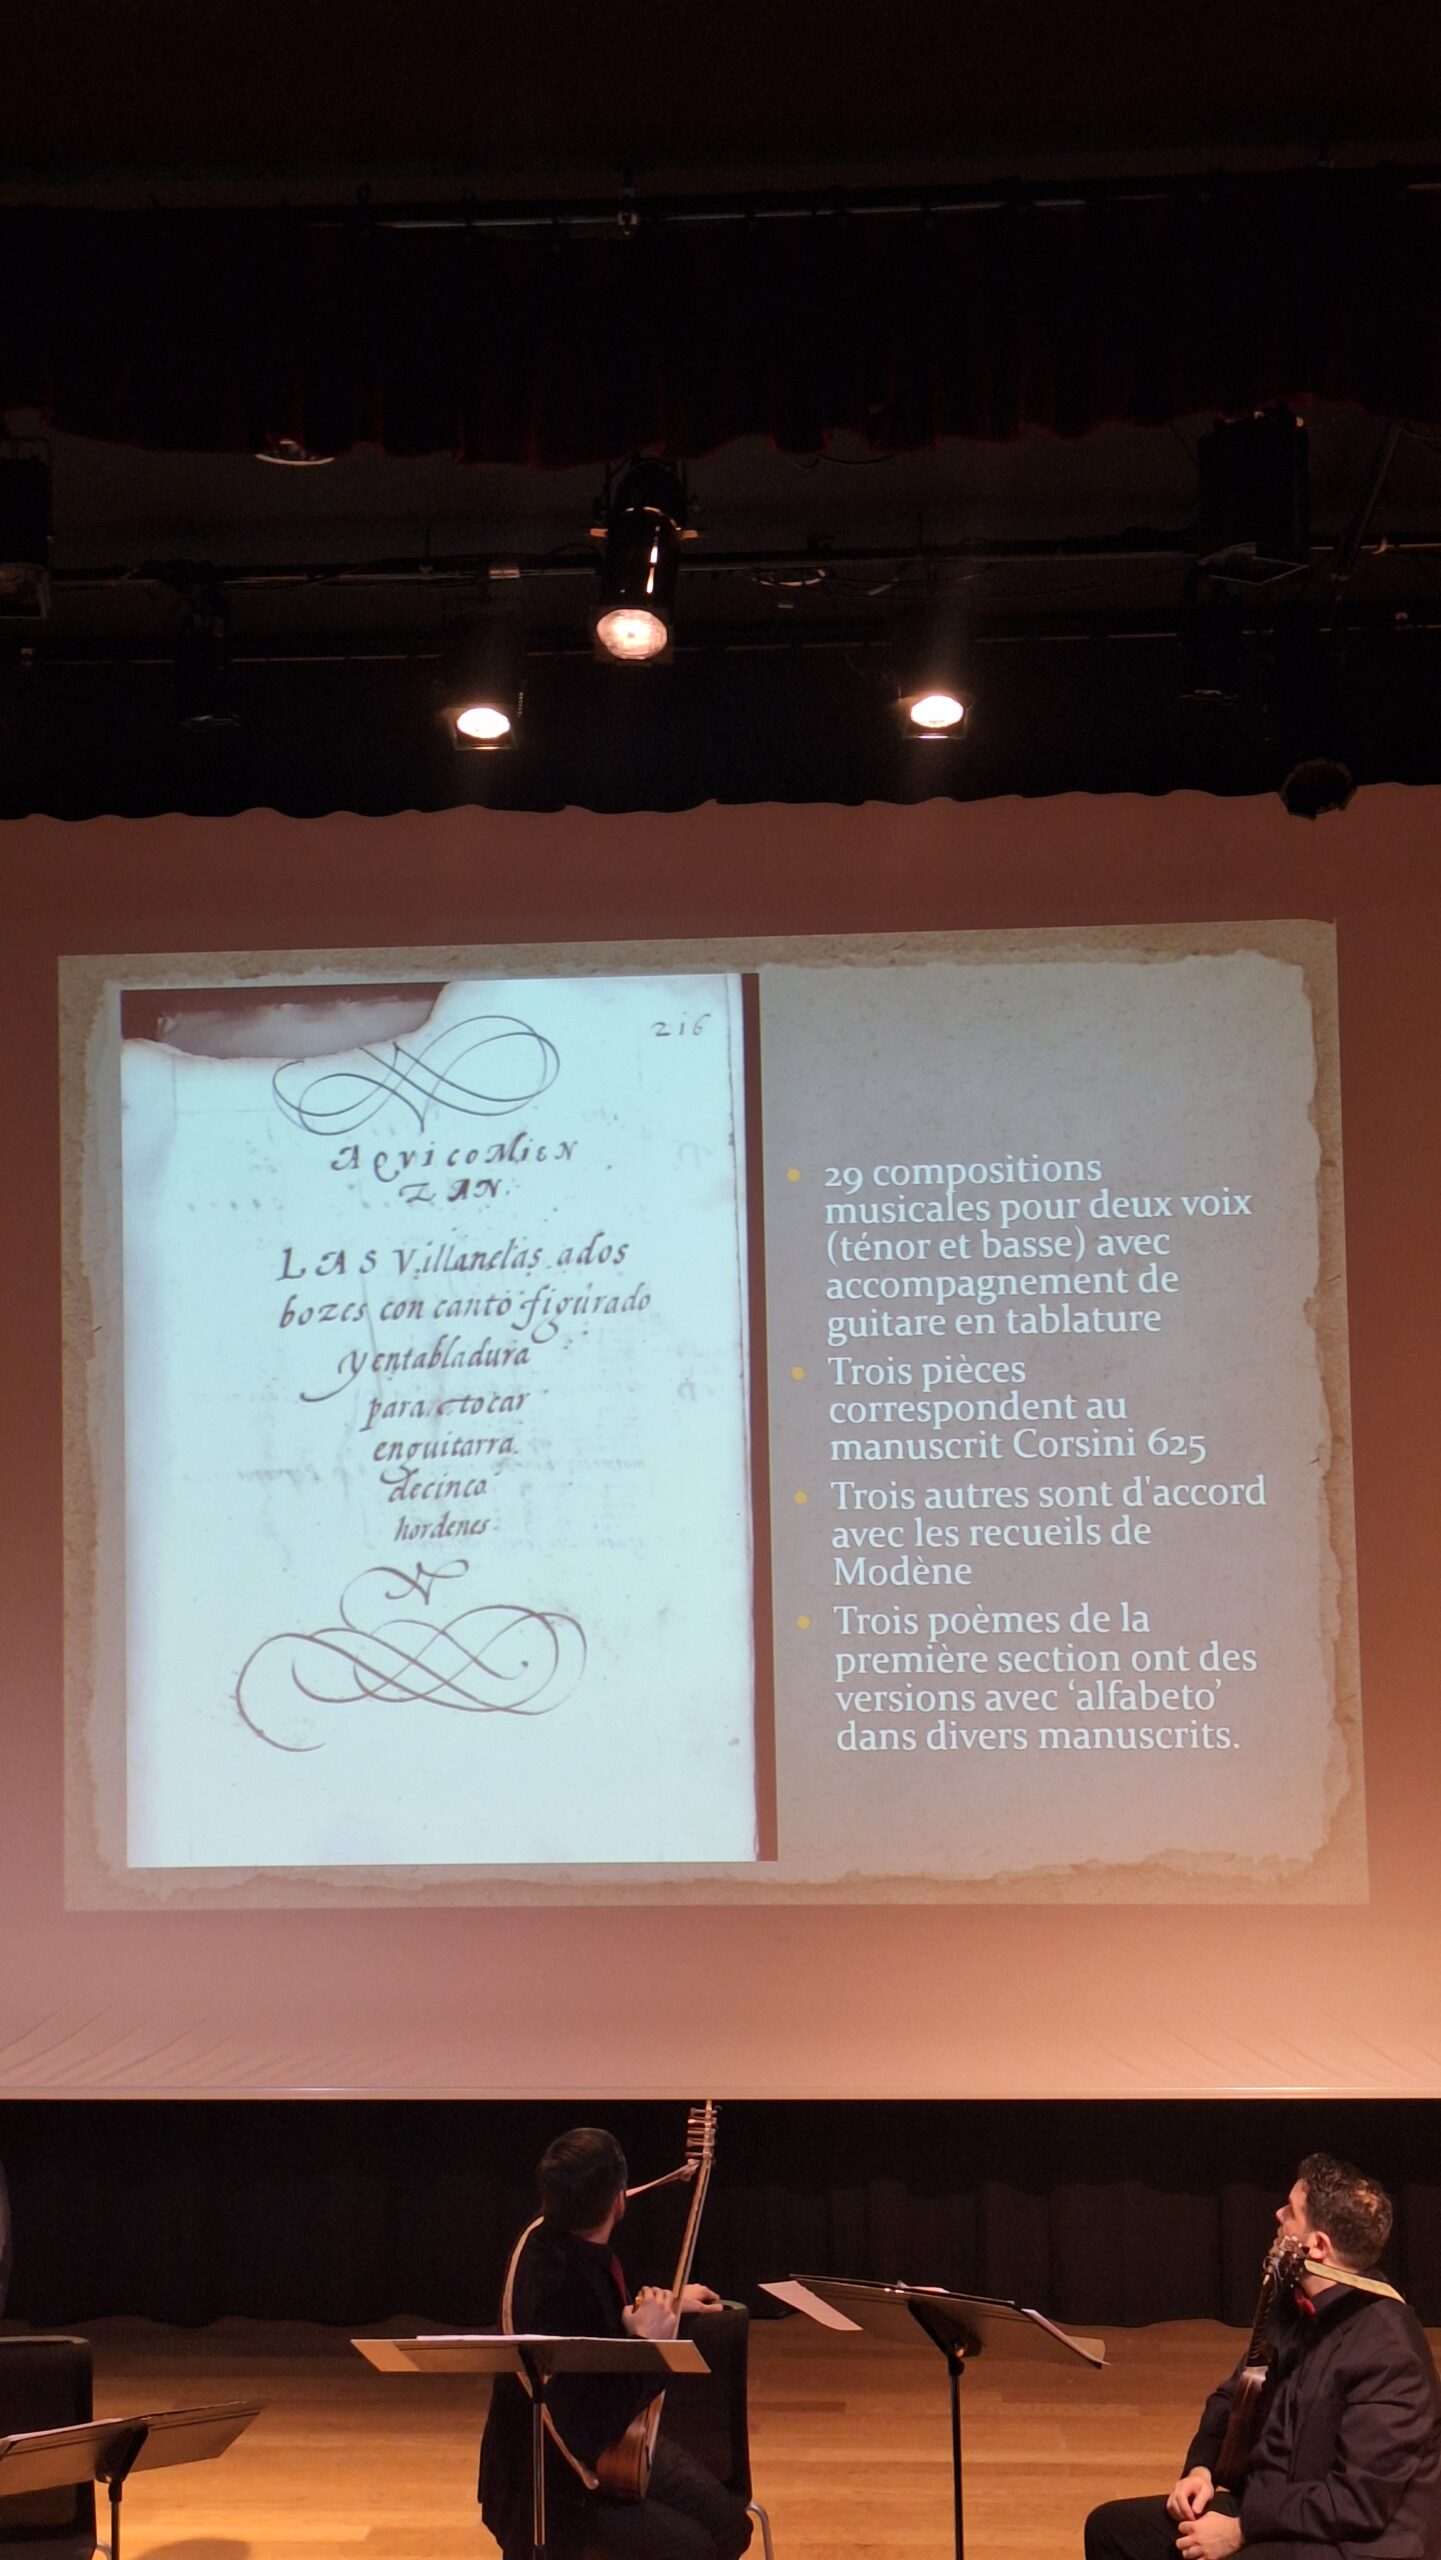 216
AQVICOMIEN
ZAN.
LAS Villanelas ados
bozes con canto figurado
yentabladura
para tocar
enguitarra
decinco
hordenes.
• 29 compositions
musicales pour deux voix
(ténor et basse) avec
accompagnement de
guitare en tablature
• Trois pièces
correspondent au
manuscrit Corsini 625
• Trois autres sont d'accord
avec les recueils de
Modène
• Trois poèmes de la
première section ont des
versions avec ‘alfabeto’
dans divers manuscrits.